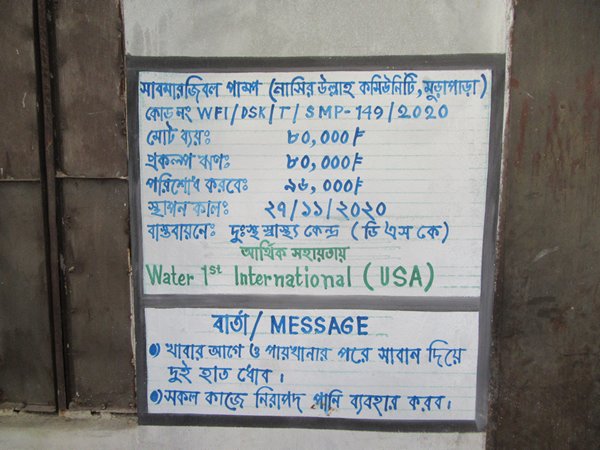 সাবমারজিবল পাম্প (নাসির উল্লাহ কমিউনিটি, মুড়াপাড়া)
কোড নং WFI/DSK/T/SMP-149/2020
মোট ব্যয়ঃ ৮০,০০০/=
প্রকল্প ঋণঃ ৮০,০০০/=
পরিশোধ করবেঃ ৯৬,০০০/=
স্থাপন কালঃ ২৭/১১/২০২০
বাস্তবায়নেঃ দুঃস্থ স্বাস্থ্য কেন্দ্র (ডি এস কে)
আর্থিক সহায়তায়
Water 1st International (USA)
বার্তা/ MESSAGE
১) খাবার আগে ও পায়খানার পরে সাবান দিয়ে
দুই হাত ধোব।
২) সকল কাজে নিরাপদ পানি ব্যবহার করব।